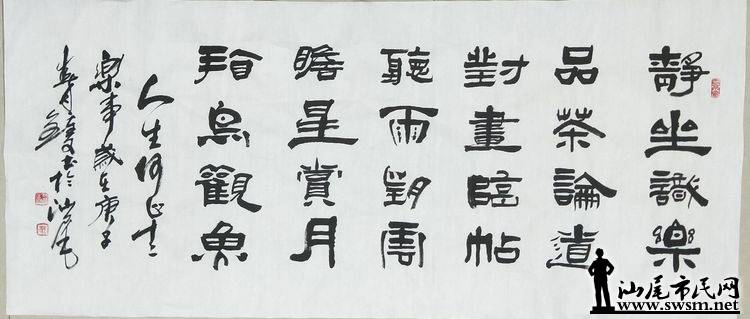 靜坐識樂
品茶論道
對畫臨帖
聽雨望雲
瞻星賞月
指鳥觀魚
人生何止十二
樂事歲在庚子
春月書於汕尾
汕尾市民网
www.swsm.net